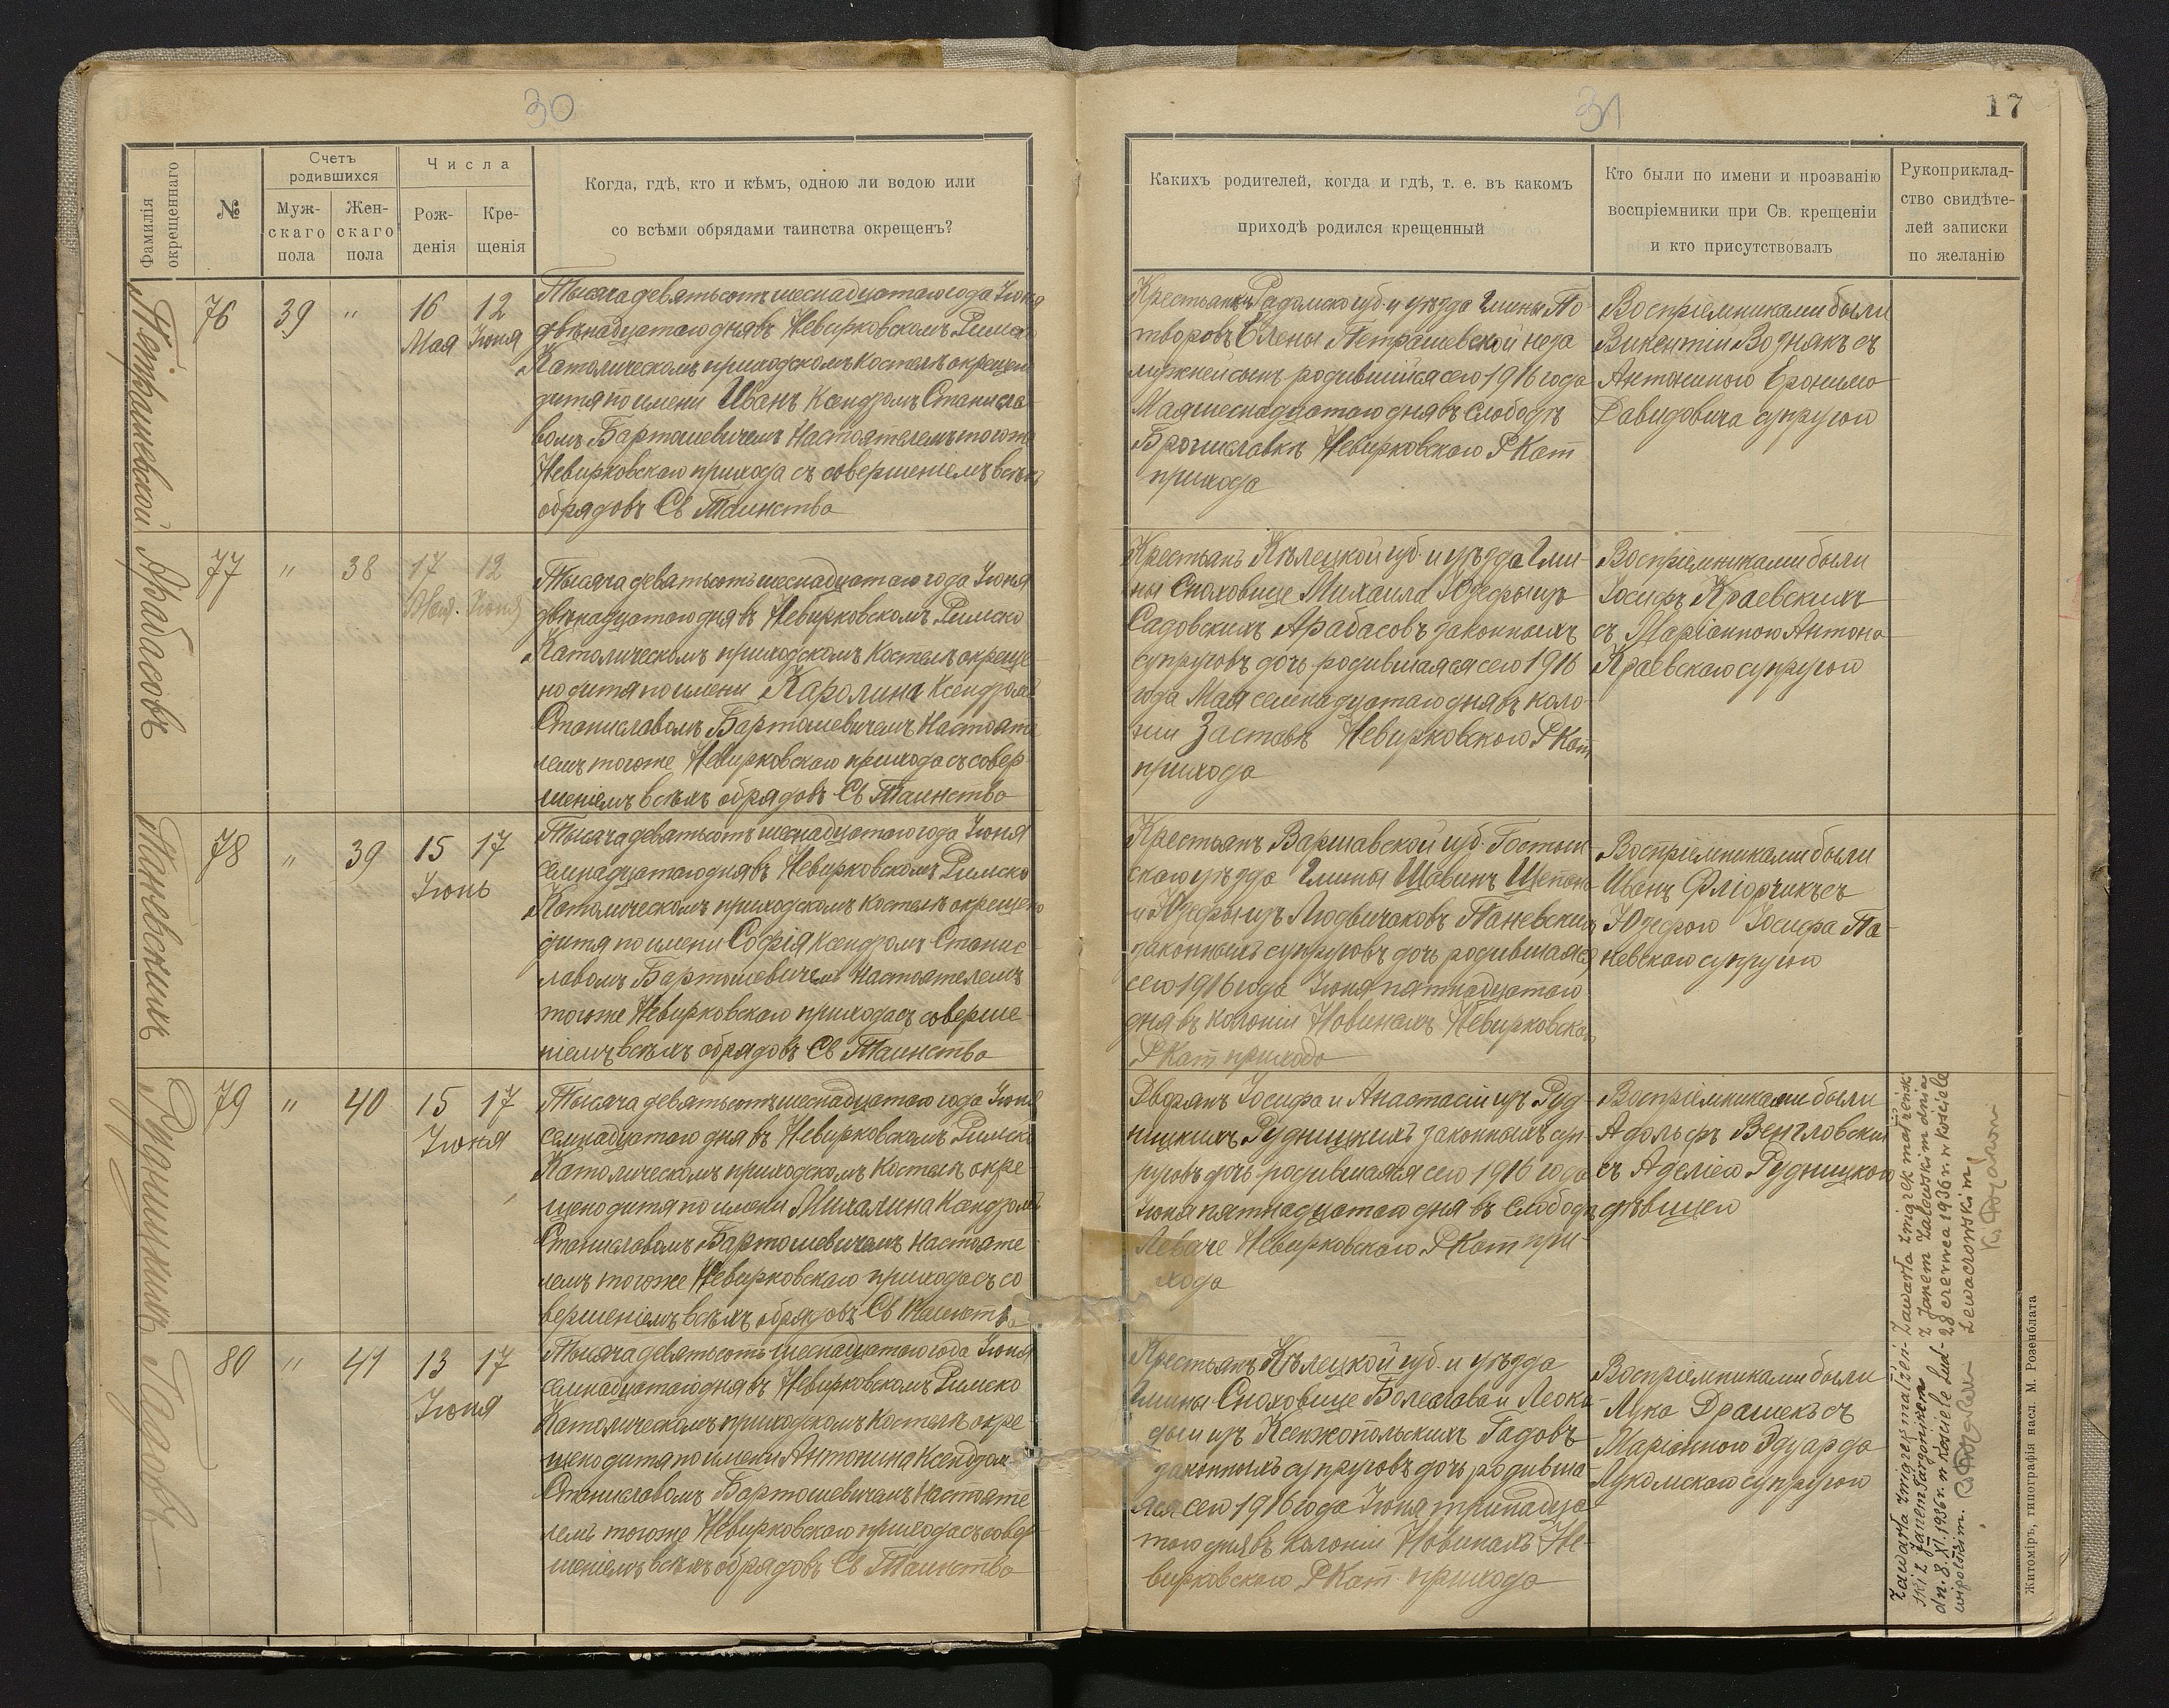 30
Фамилія окрещеннаго
№
Счетъ родившихся
Муж-
скаго
пола
Жен-
скаго
пола
Числа
Рож-
денія
Кре-
щенія
Когда, гдѣ, кто и кѣмъ, одною ли водою или
со всѣми обрядами таинства окрещенъ?
Петрашевской
76
39
"
16
Мая
12
Іюня
Тысяча девятьсотъ шеснадцатаго года Іюня
двѣнадцатаго дня въ Невирковскомъ Римско
Католическомъ приходскомъ костелѣ окрещен
дитя по имени Иванъ Ксендзомъ Станисла-
вомъ Бартошевичемъ Настоятелемъ того же
Невирковскаго прихода съ совершеніемъ всѣхъ
обрядовъ Св Таинства
Арабасовъ
77
"
38
17
Мая
12
Іюня
Тысяча девятьсотъ шеснадцатаго года Іюня
двѣнадцатаго дня въ Невирковскомъ Римско
Католическомъ приходскомъ костелѣ окреще-
но дитя по имени Каролина Ксендзомъ
Станиславомъ Бартошевичемъ Настояте
лемъ тогоже Невирковскаго прихода съ совер-
шеніемъ всѣхъ обрядовъ Св Таинства
Паневскихъ
78
"
39
15
Іюнь
17
Тысяча девятьсотъ шеснадцатаго года Іюня
семнадцатаго дня въ Невирковскомъ Римско
Католическомъ приходскомъ костелѣ окрещено
дитя по имени Софія Ксендзомъ Станис-
лавомъ Бартошевичемъ Настоятелемъ
тогоже Невирковскаго прихода съ соверше-
ніемъ всѣхъ обрядовъ Св Таинства
Рудницкихъ
79
"
40
15
Іюня
17
Тысяча девятьсотъ шеснадцатаго года Іюня
семнадцатаго дня въ Невирковскомъ Римско
Католическомъ приходскомъ костелѣ окре
щено дитя по имени Михалина Ксендзомъ
Станиславомъ Бартошевичемъ Настояте
лемъ тогоже Невирковскаго прихода съ со
вершеніемъ всѣхъ обрядовъ Св Таинства
Гадовъ
80
"
41
13
Іюня
17
Тысяча девятьсотъ шеснадцатаго года Іюня
семнадцатаго дня въ Невирковскомъ Римско
Католическомъ приходскомъ костелѣ окре
щено дитя по имени Антонина Ксендзом
Станиславомъ Бартошевичемъ Настояте
лемъ тогоже Невирковскаго прихода съ совер-
шеніемъ всѣхъ обрядовъ Св Таинства
31
17
Какихъ родителей, когда и гдѣ, т. е. въ какомъ
приходѣ родился крещенный
Кто были по имени и прозванію
воспріемники при Св. крещеніи
и кто присутствовалъ
Рукоприклад-
ство свидѣте-
лей записки
по желанію
Крестьянки Радомской губ. и уѣзда Гмины По-
творовъ Елены Петрашевской неза
мужней сынъ родившійся сего 1916 года
Мая шеснадцатаго дня въ слободѣ
Брониславкѣ Невирковскаго РКат
прихода
Воспріемниками были
Викентій Вознякъ съ
Антониною Еронима
Давидовича супругою
Крестьянъ Кѣлецкой губ. и уѣзда Гми-
ны Сноховице Михаила Юзефы изъ
Садовскихъ Арабасовъ законныхъ
супруговъ дочь родившаяся сего 1916
года Мая семнадцатаго дня въ коло-
ніи Заставѣ Невирковскаго РКат
прихода
Воспріемниками были
Іосифъ Краевскихъ
съ Маріанною Антона
Краевскаго супругою
Крестьянъ Варшавской губ. Гостын-
скаго уѣзда Гмины Щавинъ Щепана
и Юзефы изъ Людвичаковъ Паневскихъ
законныхъ супруговъ дочь родившаяся
сего 1916 года Іюня пятнадцатаго
дня въ колоніи Новинахъ Невирковскаго
РКат прихода
Воспріемниками были
Иванъ Фліорчикъ съ
Юзефою Іосифа Па-
невскаго супругою
Дворянъ Іосифа и Анастасіи изъ Руд-
ницкихъ Рудницкихъ законныхъ суп-
руговъ дочь родившаяся сего 1916 года
Іюня пятнадцатаго дня въ Слободѣ
Леваче Невирковскаго РКат при-
хода
Воспріемниками были
Адольфъ Венгловскій
съ Аделіею Рудницкою
дѣвицею
Zawarła związek małżeńsk
z Janem Zalewskim dnia
28 czerwca 1936 r. w kościele
Lewaczowskim
Крестьянъ Кѣлецкой губ. и уѣзда
Гмины Сноховице Болеслава и Леока-
дыи изъ Ксенжопольскихъ Гадовъ
законныхъ супруговъ дочь родивша
яся сего 1916 года Іюня тринадца
таго дня въ колоніи Новинахъ Не-
вирковскаго РКат прихода
Воспріемниками были
Лука Драшекъ съ
Маріанною Эдуарда
Лукомскаго супругою
Zawarła związek małżeń-
ski z Janem
dn. 8.XI.1936 r. w kościele Lud-
wipolskim.
Житоміръ, типографія насл. М. Розенблата